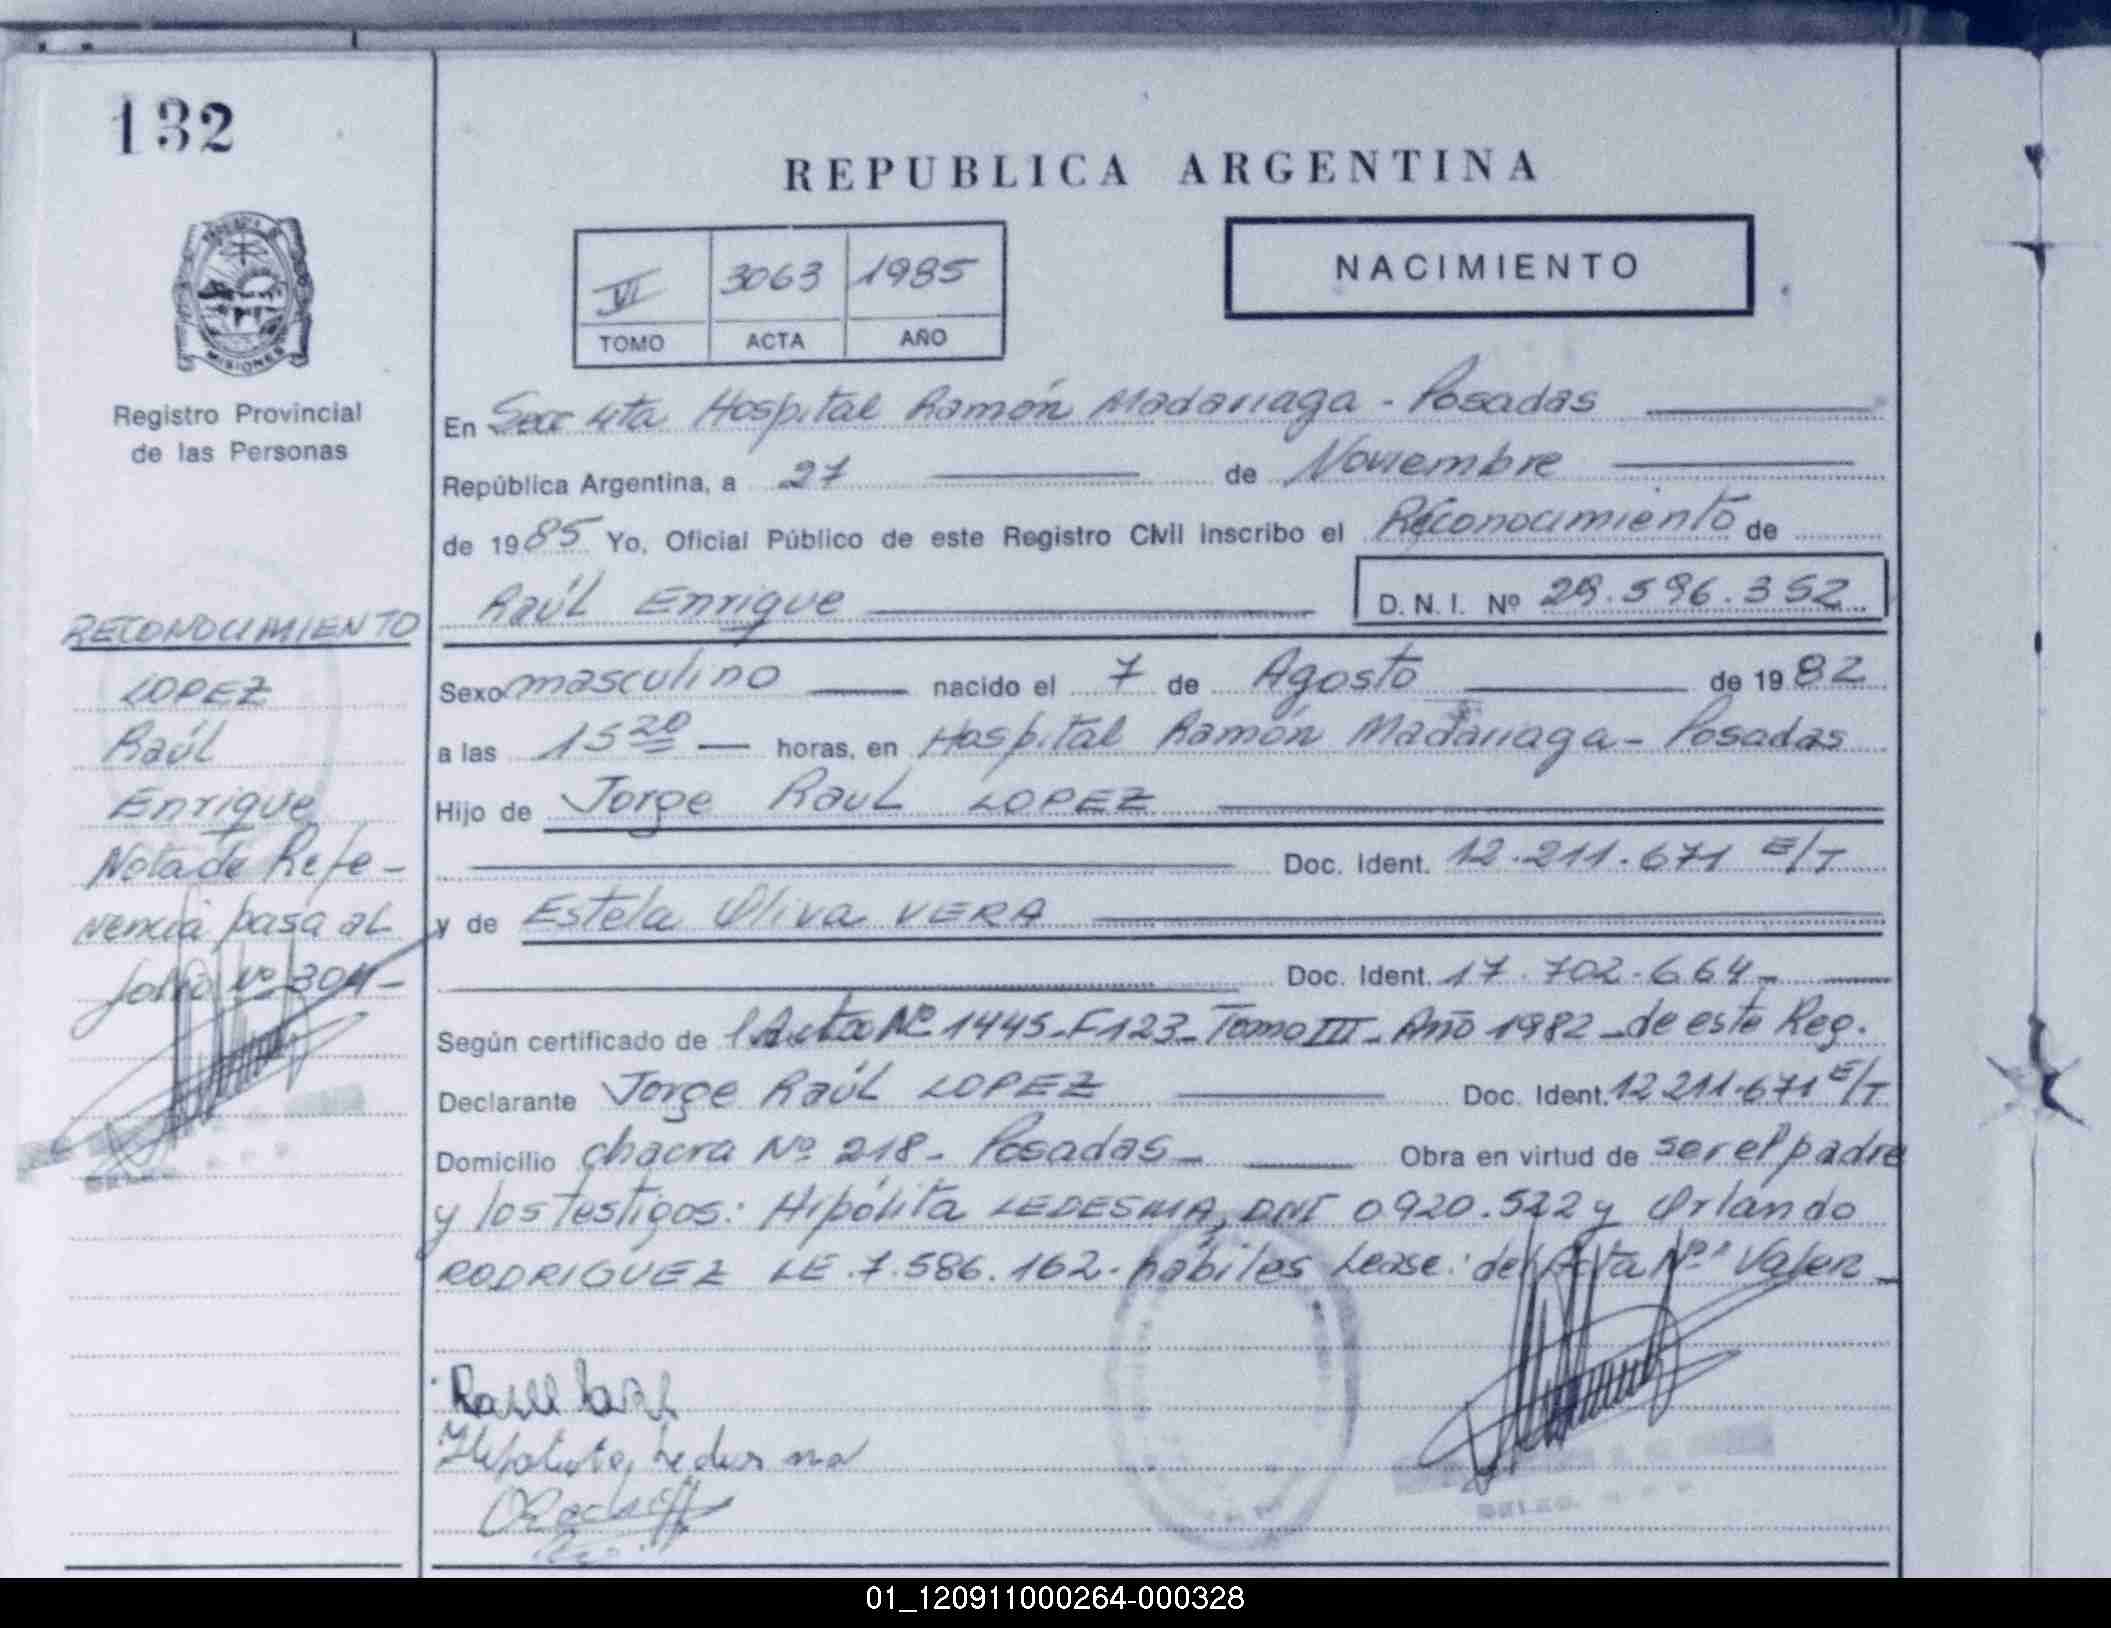 132
REPUBLICA ARGENTINA
VI 3063 1985
TOMO ACTA AÑO
NACIMIENTO
MISIONES
Registro Provincial
de las Personas
En Secc 4ta Hospital Ramón Madariaga - Posadas
República Argentina, a 27 de Noviembre
de 1985 Yo, Oficial Público de este Registro Civil inscribo el Reconocimiento de
Raúl Enrique D.N.I. Nº 29.596.352
RECONOCIMIENTO
LOPEZ
Raúl
Enrique
Nota de Refe-
rencia pasa al
folio Nº 304-
Sexo masculino nacido el 7 de Agosto de 1982
a las 15 20 horas, en Hospital Ramón Madariaga - Posadas
Hijo de Jorge Raul LOPEZ
Doc. Ident. 12.211.671 E/T
y de Estela Oliva VERA
Doc. Ident. 17.702.664-
Según certificado de Acta Nº 1445-F123-Tomo III-Año 1982-de este Reg.
Declarante Jorge Raúl LOPEZ Doc. Ident. 12.211.671 E/T
Domicilio chacra Nº 218- Posadas- Obra en virtud de ser el padre
y los testigos: Hipólita LEDESMA, DNI 0920.522 y Orlando
RODRIGUEZ LE.7.586.162. hábiles Lease: "del Acta Nº" Valen-
Hipolita Ledesma
01_120911000264-000328